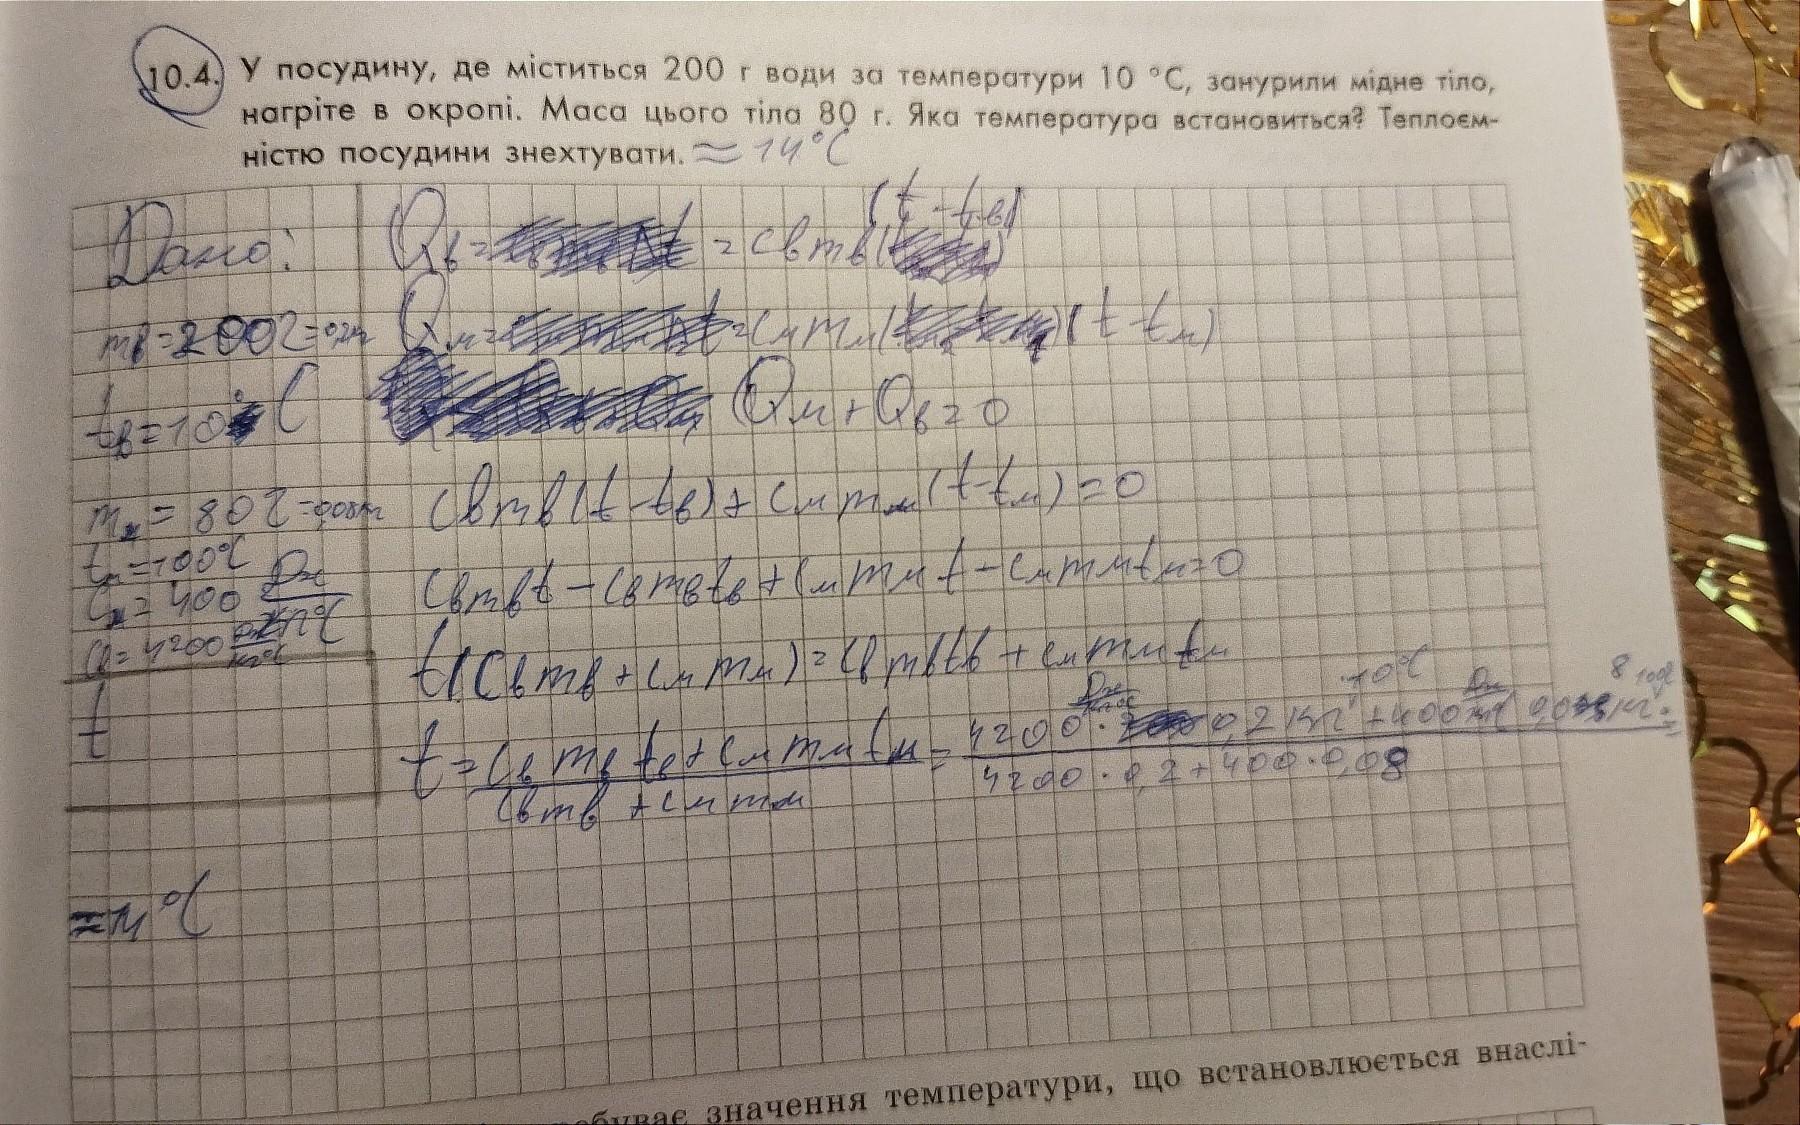 10.4. У посудину, де міститься 200 г води за температури 10 °С, занурили мідне тіло,
нагріте в окропі. Маса цього тіла 80 г. Яка температура встановиться? Теплоєм-
ністю посудини знехтувати. ≈ 14°C
Дано:
mв = 200г =
tв = 10°C
mм = 80г =
tм = 100°C
cм = 400 Дж/кг°C
cв = 4200 Дж/кг°C
t
Qв = = cвmв(t - tв)
Qм = = cмmм (t - tм)
Qм + Qв = 0
cвmв(t - tв) + cмmм(t - tм) = 0
cвmвt - cвmвtв + cмmмt - cмmмtм = 0
t(cвmв + cмmм) = cвmвtв + cмmмtм
t = (cвmвtв + cмmмtм)/(cвmв + cмmм) = (4200 Дж/кг°C · 0,2 кг · 10°C + 400 Дж/ 0,08 кг · 100°C)/(4200 · 0,2 + 400 · 0,08) =
≈ 14 °C
значення температури, що встановлюється внаслі-